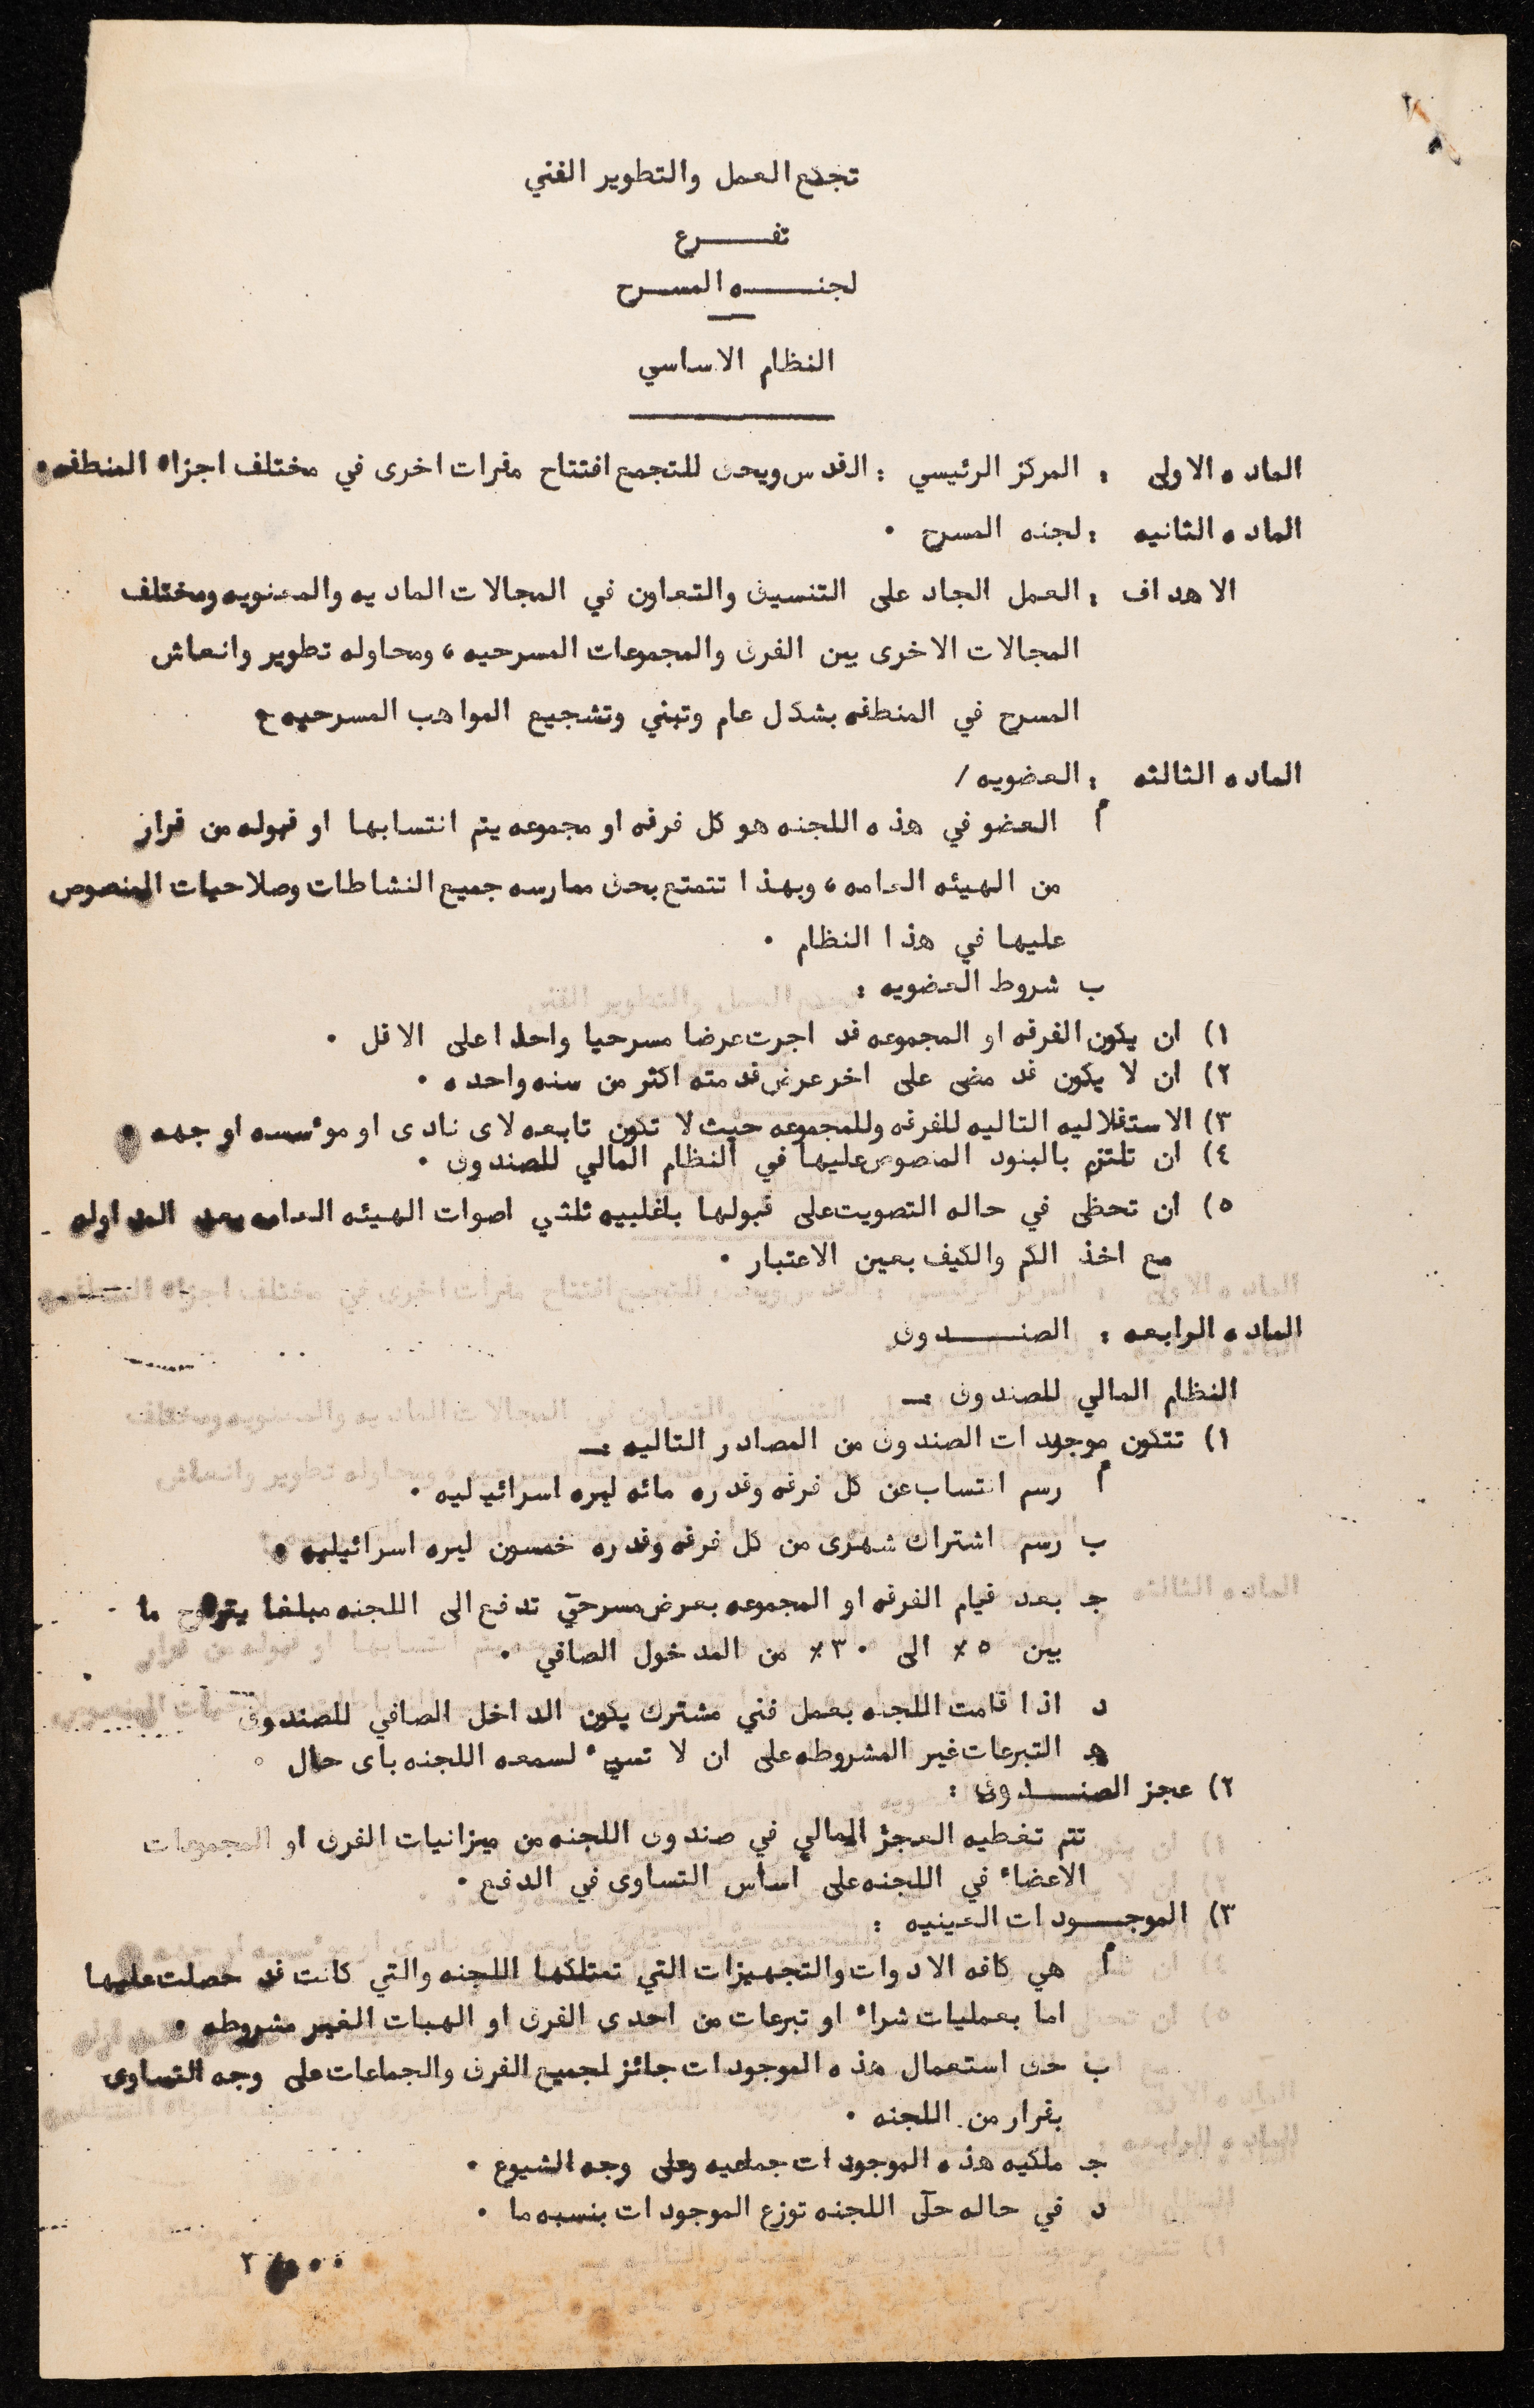 تجمع العمل والتطوير الفني
تفـــرع
لجنـــه المســرح
النظام الاساسي
الماده الاولى : المركز الرئيسي : القدس ويحق للتجمع افتتاح مقرات اخرى في مختلف اجزاء المنطقه .
الماده الثانيه : لجنه المسرح .
الاهداف : العمل الجاد على التنسيق والتعاون في المجالات الماديه والمعنويه ومختلف
المجالات الاخرى بين الفرق والمجموعات المسرحيه ، ومحاوله تطوير وانعاش
المسرح في المنطقه بشكل عام وتبني وتشجيع المواهب المسرحيه
الماده الثالثه : العضويه /
أ العضو في هذه اللجنه هو كل فرقه او مجموعه يتم انتسابها او قبوله من قرار
من الهيئه العامه ، وبهذا تتمتع بحق ممارسه جميع النشاطات وصلاحيات المنصوص
عليها في هذا النظام .
ب شروط العضويه :
١) ان يكون الفرقه او المجموعه قد اجرت عرضا مسرحيا واحدا على الاقل .
٢) ان لا يكون قد مضى على اخر عرض قدمته اكثر من سنه واحده .
٣) الاستقلاليه التاليه للفرقه وللمجموعه حيث لا تكون تابعه لاى نادى او موٴسسه او جهه .
٤) ان تلتزم بالبنود المنصوص عليها في النظام المالي للصندوق .
٥) ان تحظى في حاله التصويت على قبولها باغلبيه ثلثي اصوات الهيئه العامه بعد المداوله
مع اخذ الكم والكيف بعين الاعتبار .
الماده الرابعه : الصنـــدوق
النظام المالي للصندوق :ـ
١) تتكون موجودات الصندوق من المصادر التاليه :ـ
أ رسم انتساب عن كل فرقه وقدره مائه ليره اسرائيليه .
ب رسم اشتراك شهرى من كل فرقه وقدره خمسون ليره اسرائيليه .
جـ بعد قيام الفرقه او المجموعه بعرض مسرحي تدفع الى اللجنه مبلغا يتروح ما
بين ٥٪ الى ٣٠٪ من المدخول الصافي .
د اذا قامت اللجنه بعمل فني مشترك يكون الداخل الصافي للصندوق
هـ التبرعات غير المشروطه على ان لا تسيء لسمعه اللجنه باى حال .
٢) عجز الصنـــدوق :
تتم تغطيه العجز المالي في صندوق اللجنه من ميزانيات الفرق او المجموعات
الاعضاء في اللجنه على أساس التساوى في الدفع .
٣) الموجـــودات العينيه :
أ هي كافه الادوات والتجهيزات التي تمتلكها اللجنه والتي كانت قد حصلت عليها
اما بعمليات شراء او تبرعات من احدى الفرق او الهبات الغير مشروطه .
ب حق استعمال هذه الموجودات جائز لجميع الفرق والجماعات على وجه التساوى
بقرار من اللجنه .
جـ ملكيه هذه الموجودات جماعيه وعلى وجه الشيوع .
د في حاله حل اللجنه توزع الموجودات بنسبه ما .
٢ ...